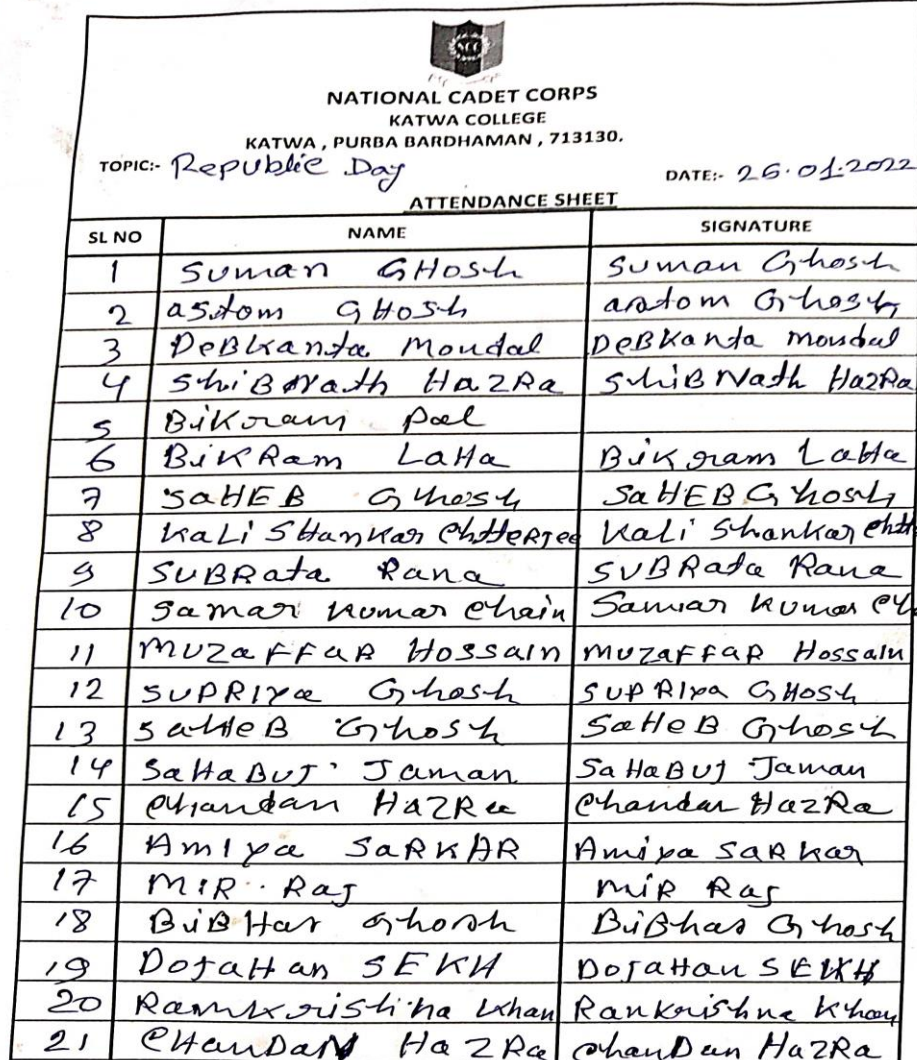 NCC
NATIONAL CADET CORPS
KATWA COLLEGE
KATWA , PURBA BARDHAMAN , 713130.
TOPIC:- Republic Day DATE:- 26.01.2022
ATTENDANCE SHEET
SL NO NAME SIGNATURE
1 SUMan GHOSh SUMan Ghosh
2 GHOSh Ghosh
3 DeBKanta Mondal DeBKanta mondal
4 ShiBNath HaZRa ShiBNath HaZRa
5 BiKram Pal
6 BiKRam LaHa Bikram LaHa
7 SaHEB Ghosh SaHEB Ghosh
8 KaLi SHanKar ChtteRJee KaLi Shankar
9 SUBRata Rana SUBRata Rana
10 Samar Kumar Chain Samar Kumar
11 MUZaFFaR HOSSain MUZaFFaR Hossain
12 SUPRIYa Ghosh SUPRIYa GHOSh
13 SaHeB Ghosh SaHeB Ghosh
14 SaHaBUJ Jaman SaHaBUJ Jaman
15 Chandan HaZRa Chandan HaZRa
16 AmIYa SaRKAR Amiya SaRKar
17 MIR Raj MIR Raj
18 BiBHas Ghosh BiBhas Ghosh
19 DoJaHan SEKH DOJaHan SEKH
20 Ramkrishna Khan Rankrishna Khan
21 CHanDaN HaZRa ChanDan HaZRa